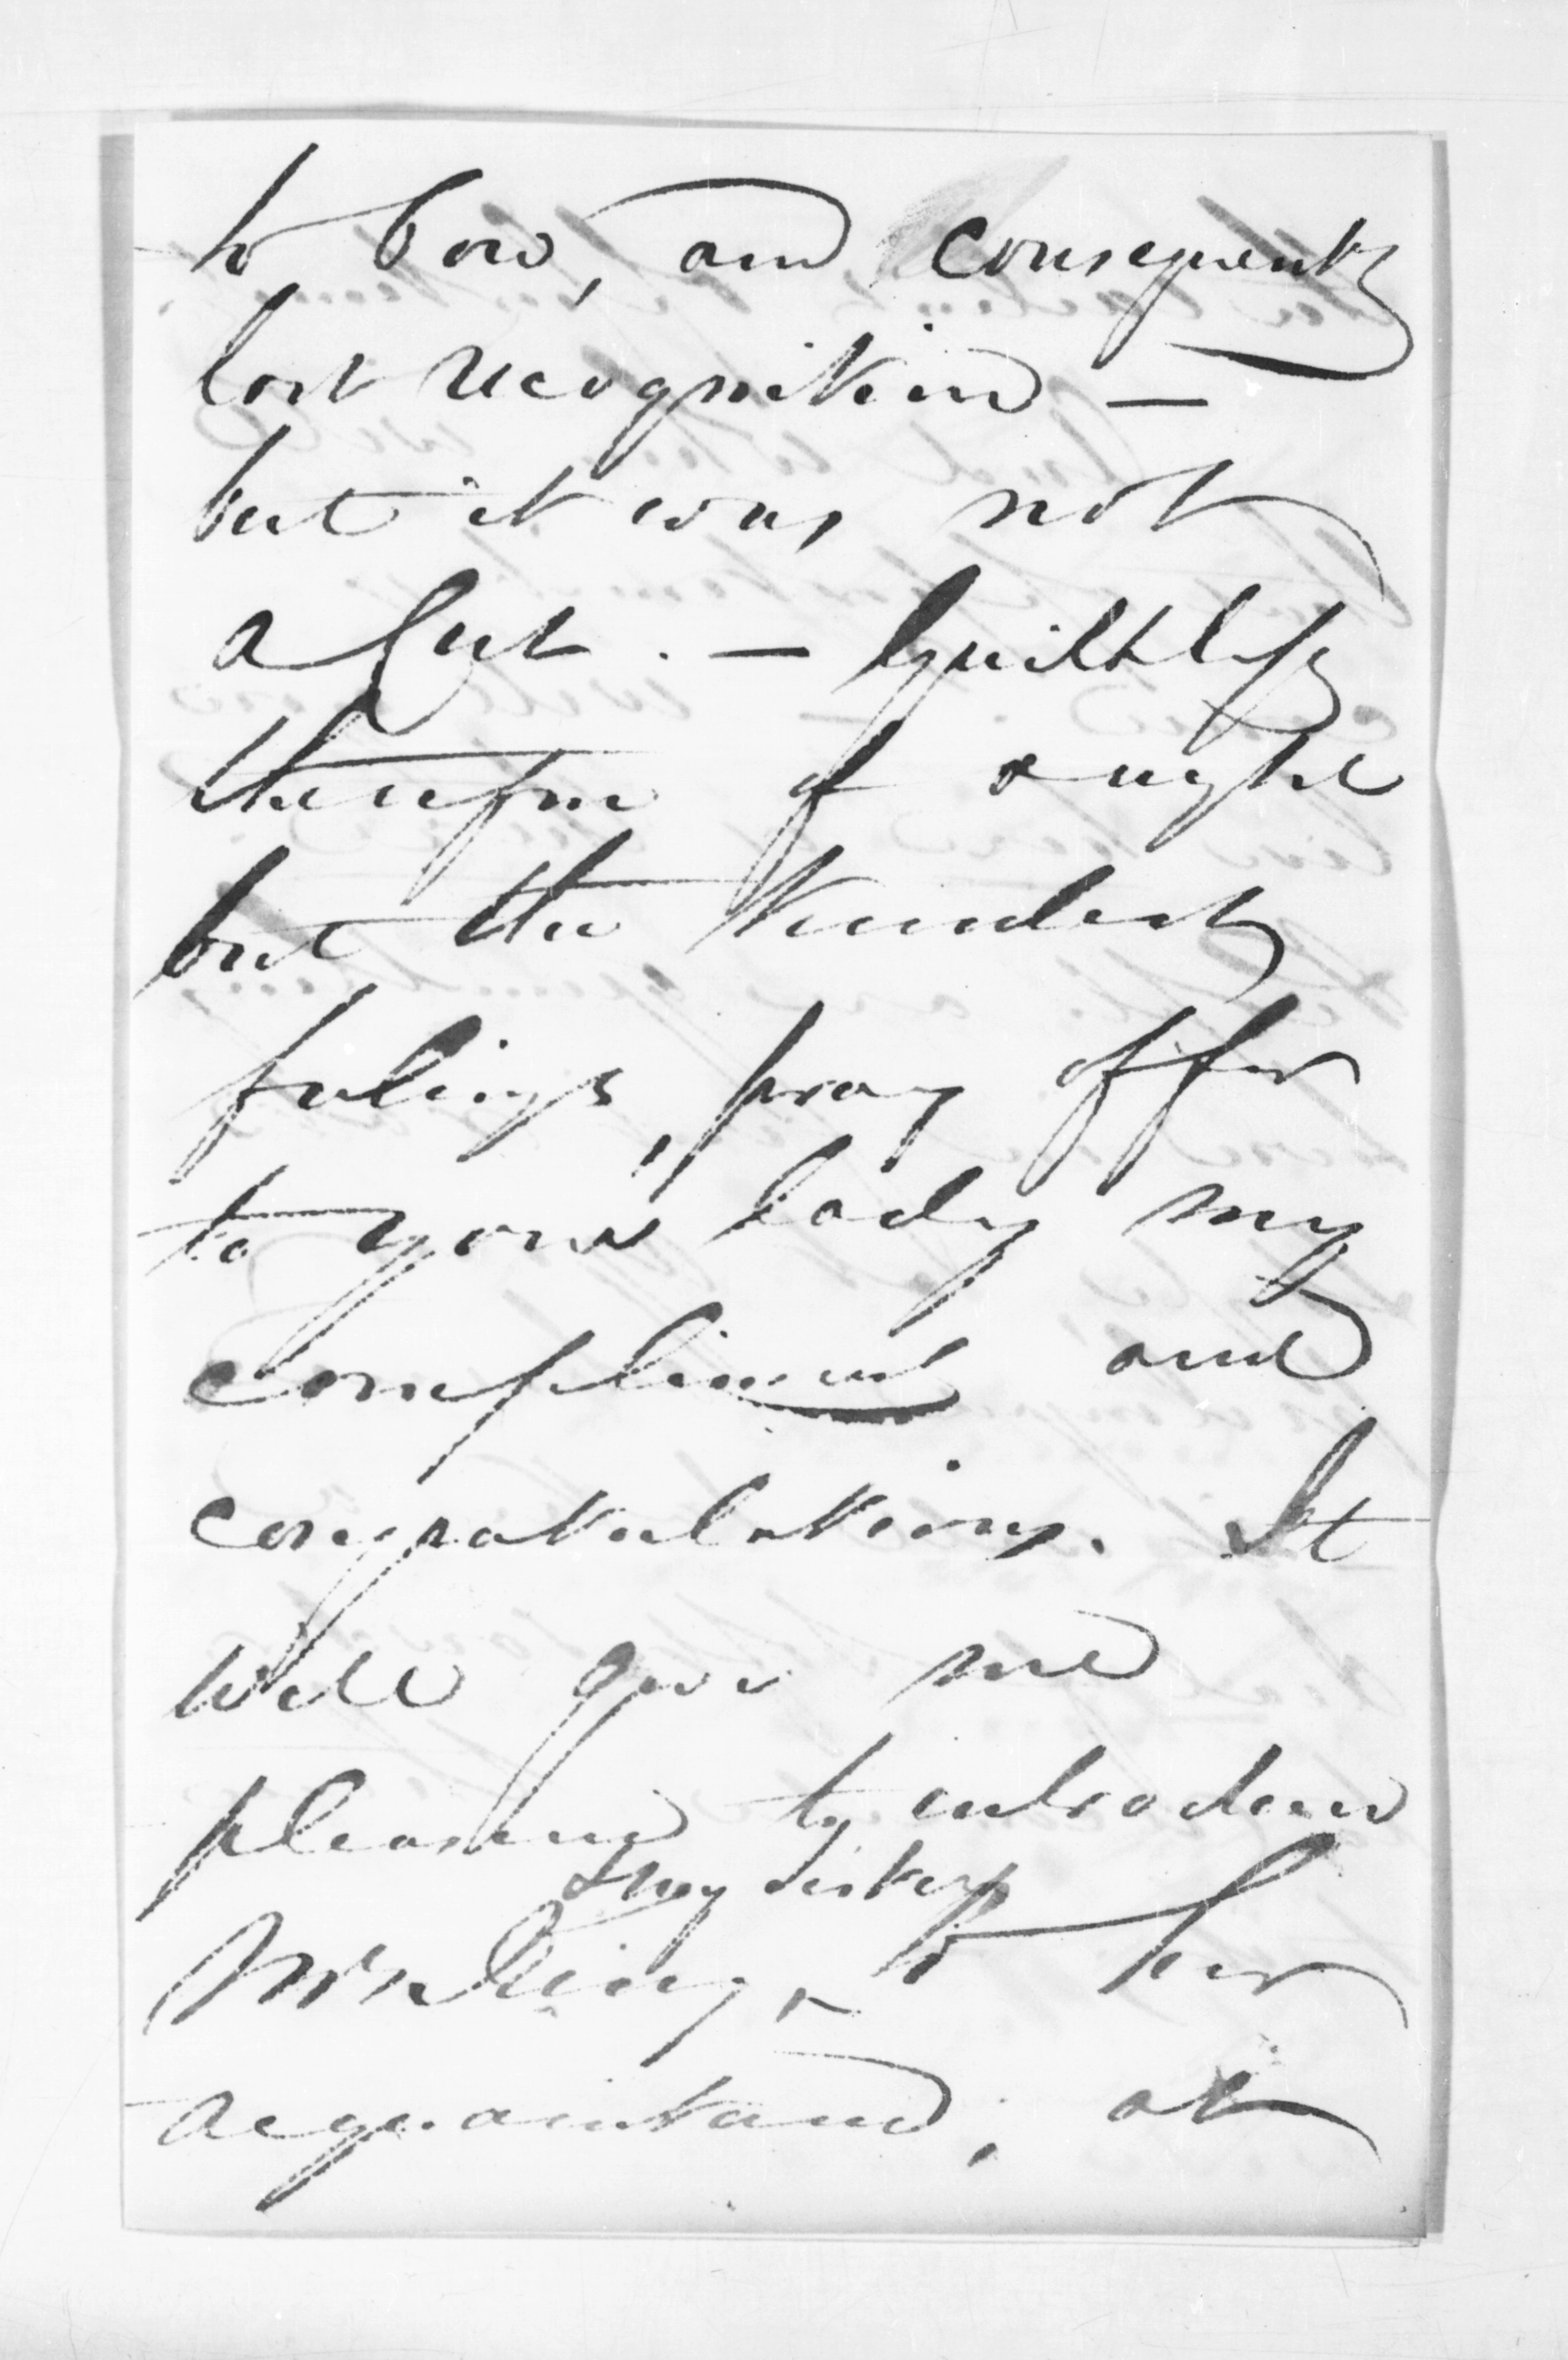 to bow, and consequently
lost recognition —
but it was not
a cut. — Guiltless
therefore of aught
but the kindest
feelings, pray offer
to your lady my
compliments and
congratulations. It
will give me
pleasure to introduce
& my sisters
Mrs King, to her
acquaintance, at